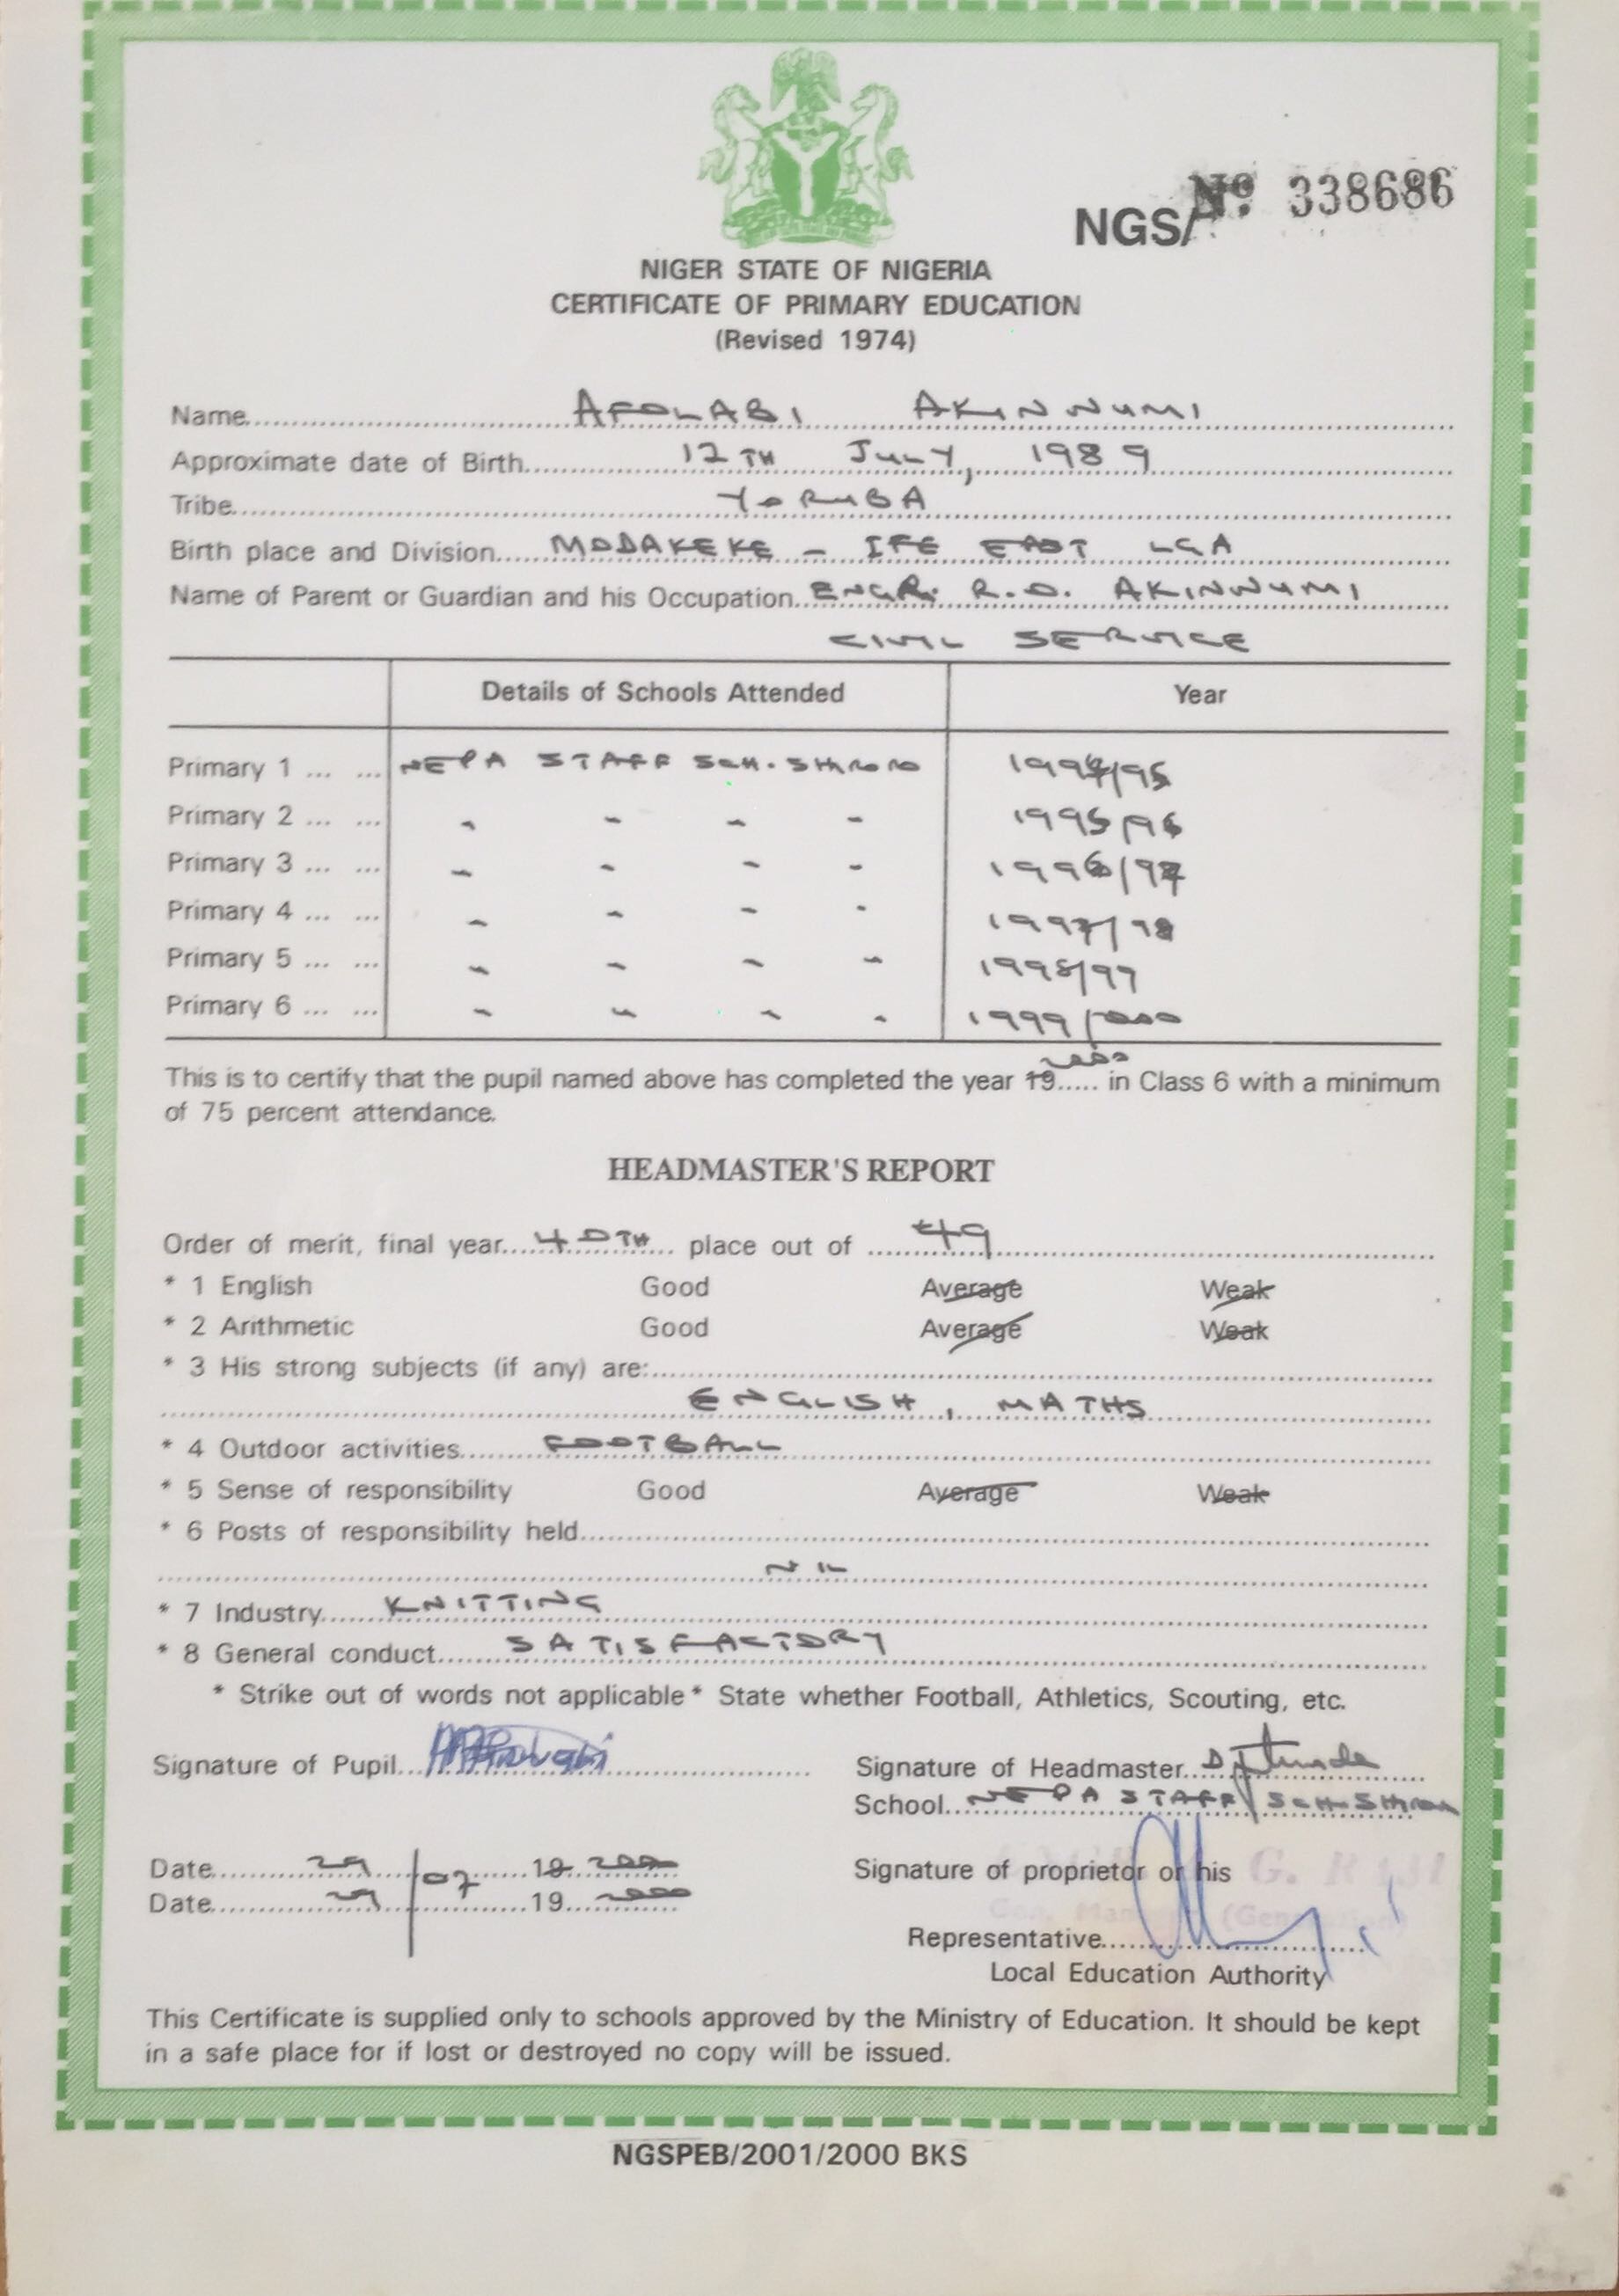 NGS/ Nº 338686
NIGER STATE OF NIGERIA
CERTIFICATE OF PRIMARY EDUCATION
(Revised 1974)
Name........ AFOLABI AKINWUMI
Approximate date of Birth........ 12TH JULY, 1989
Tribe........ YORUBA
Birth place and Division..... MODAKEKE - IFE EAST LGA
Name of Parent or Guardian and his Occupation.. ENGR. R.O. AKINWUMI
CIVIL SERVICE
Details of Schools Attended Year
Primary 1 ... ... NEPA STAFF SCH. SHIRORO 1994/95
Primary 2 ... ... - - - - 1995/96
Primary 3 ... ... - - - - 1996/97
Primary 4 ... ... - - - - 1997/98
Primary 5 ... ... - - - - 1998/99
Primary 6 ... ... - - - - 1999/2000
This is to certify that the pupil named above has completed the year 19..... 2000 in Class 6 with a minimum
of 75 percent attendance.
HEADMASTER'S REPORT
Order of merit, final year.... 40TH .... place out of ..... 49
* 1 English Good Average Weak
* 2 Arithmetic Good Average Weak
* 3 His strong subjects (if any) are:
ENGLISH, MATHS
* 4 Outdoor activities..... FOOTBALL
* 5 Sense of responsibility Good Average Weak
* 6 Posts of responsibility held
NIL
* 7 Industry..... KNITTING
* 8 General conduct..... SATISFACTORY
* Strike out of words not applicable * State whether Football, Athletics, Scouting, etc.
Signature of Pupil... Afolabi
Signature of Headmaster...
School... NEPA STAFF SCH. SHIRORO
Date..... 29/07 ..... 19 2000
Date..... 29 ..... 19 2000
Signature of proprietor or his
Representative
Local Education Authority
This Certificate is supplied only to schools approved by the Ministry of Education. It should be kept
in a safe place for if lost or destroyed no copy will be issued.
NGSPEB/2001/2000 BKS